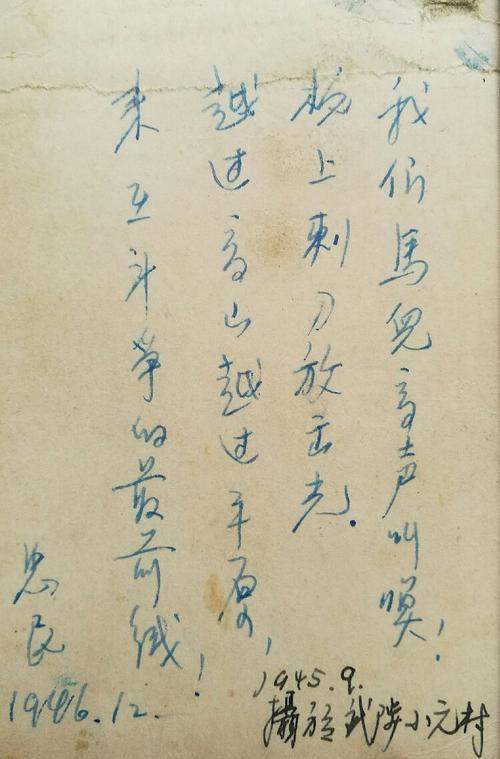 我们馬兒高声叫喚！
枪上刺刀放出光.
越过高山越过平原,
来在斗爭的最前线！
思民
1946.12.
1945.9.
攝於武陟小元村